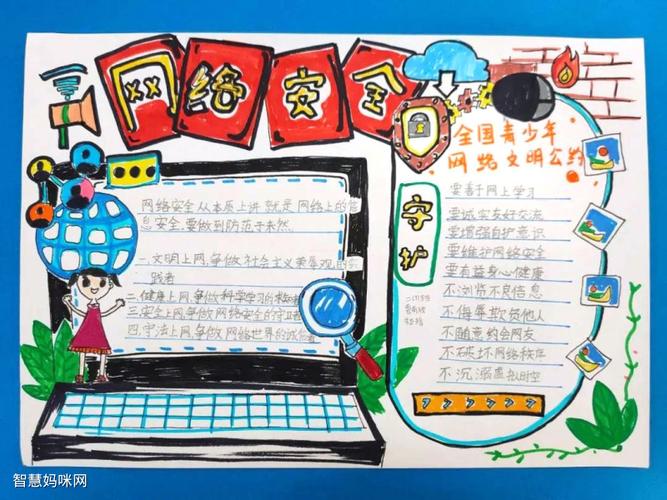 网络安全
网络安全从本质上讲就是网络上的信
息安全,要做到防范于未然
一、文明上网,争做社会主义荣辱观的实
践者
二、健康上网,争做科学学习的求知者
三、安全上网,争做网络安全的守卫者
四、守法上网,争做网络世界的诚信者
全国青少年
网络文明公约
守护
要善于网上学习
要诚实友好交流
要增强自护意识
要维护网络安全
要有益身心健康
不浏览不良信息
不侮辱欺负他人
不随意约会网友
不破坏网络秩序
不沉溺虚拟时空
智慧妈咪网